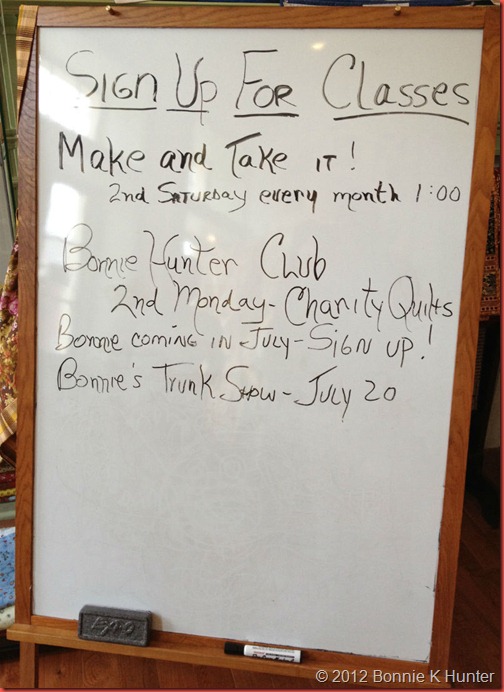 Sign Up For Classes
Make and Take it!
2nd Saturday every month 1:00
Bonnie Hunter Club
2nd Monday - Charity Quilts
Bonnie coming in July - Sign up!
Bonnie's Trunk Show - July 20
EXPO
© 2012 Bonnie K Hunter